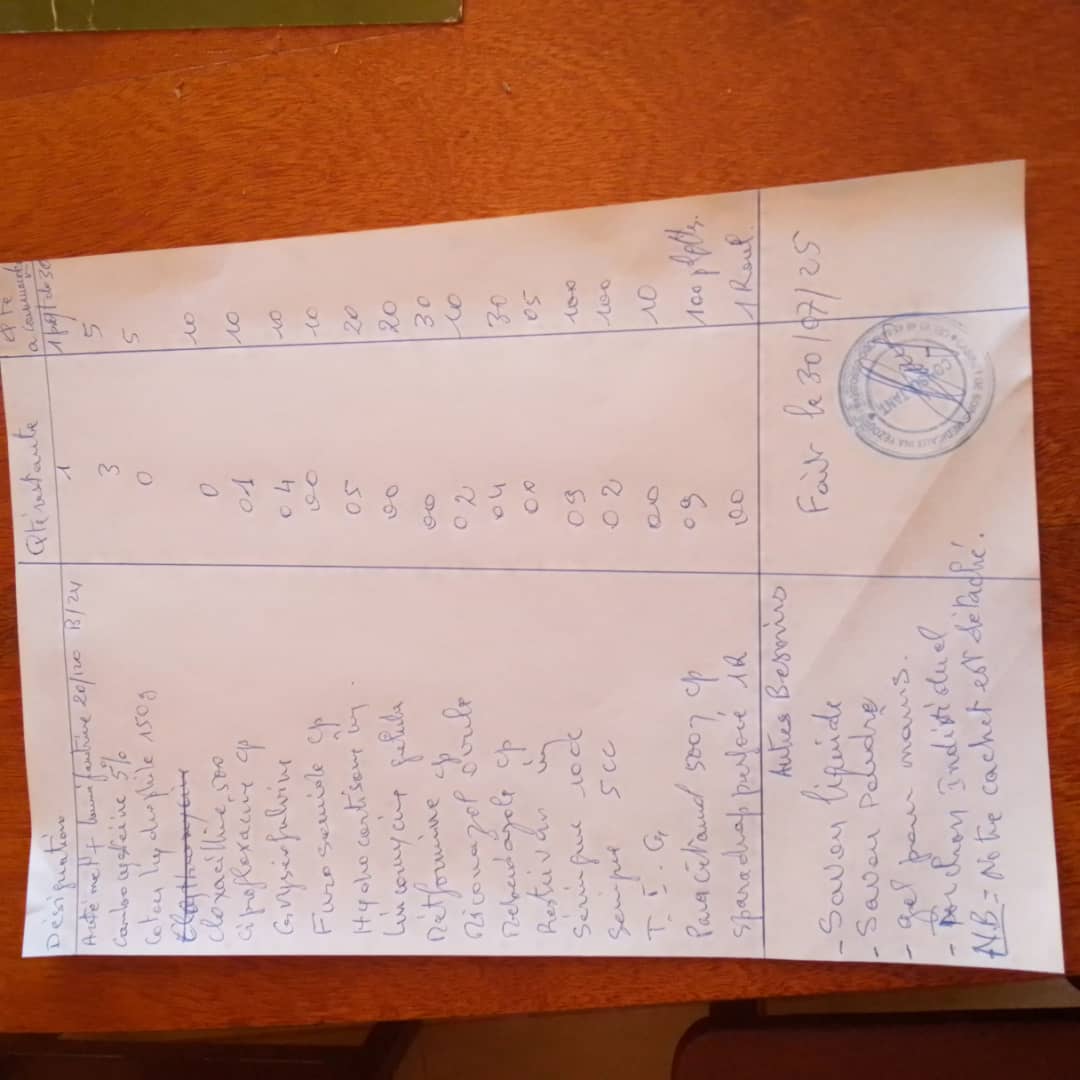 Désignations Qté restante Qte à commander
Artémett + lumifantrine 20/120 B/24 1 1 pqt de 30
Carbocystéine 5% 3 5
Coton hydrophile 150g 0 5
Cloxacilline 500 0 10
Ciprofloxacine cp 01 10
Griseofulvine 04 10
Furosemide cp 00 10
Hydrocortisone inj. 05 20
Lincomycine gelule 00 20
Metformine cp 00 30
Miconazol 02 10
Mebendazole cp 04 30
inj 00 05
Séringue 10cc 09 100
Seringue 5cc 02 100
T.I.G 00 10
Paracétamol 500g cp 09 100 plqtts.
Sparadrap perforé 1R 00 1 Roul.
Autres Besoins
- Savon liquide
- Savon Poudre
- gel pour mains.
- individuel
NB = Notre cachet est détaché.
Fait le 30/07/25